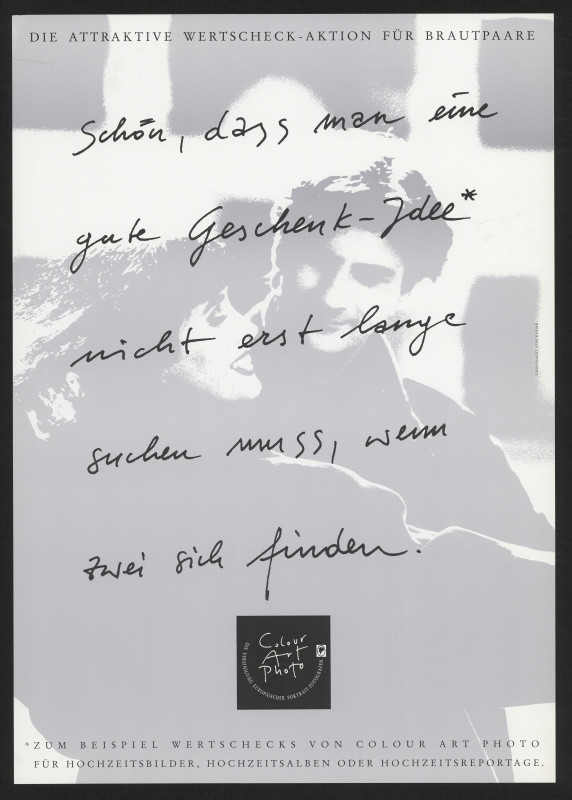 DIE ATTRAKTIVE WERTSCHECK-AKTION FÜR BRAUTPAARE
Schön, dass man eine
gute Geschenk-Idee*
nicht erst lange
suchen muss, wenn
zwei sich finden.
Colour
Art
Photo
DIE VEREINIGUNG EUROPÄISCHER PORTRAIT-FOTOGRAFEN
*ZUM BEISPIEL WERTSCHECKS VON COLOUR ART PHOTO
FÜR HOCHZEITSBILDER, HOCHZEITSALBEN ODER HOCHZEITSREPORTAGE.